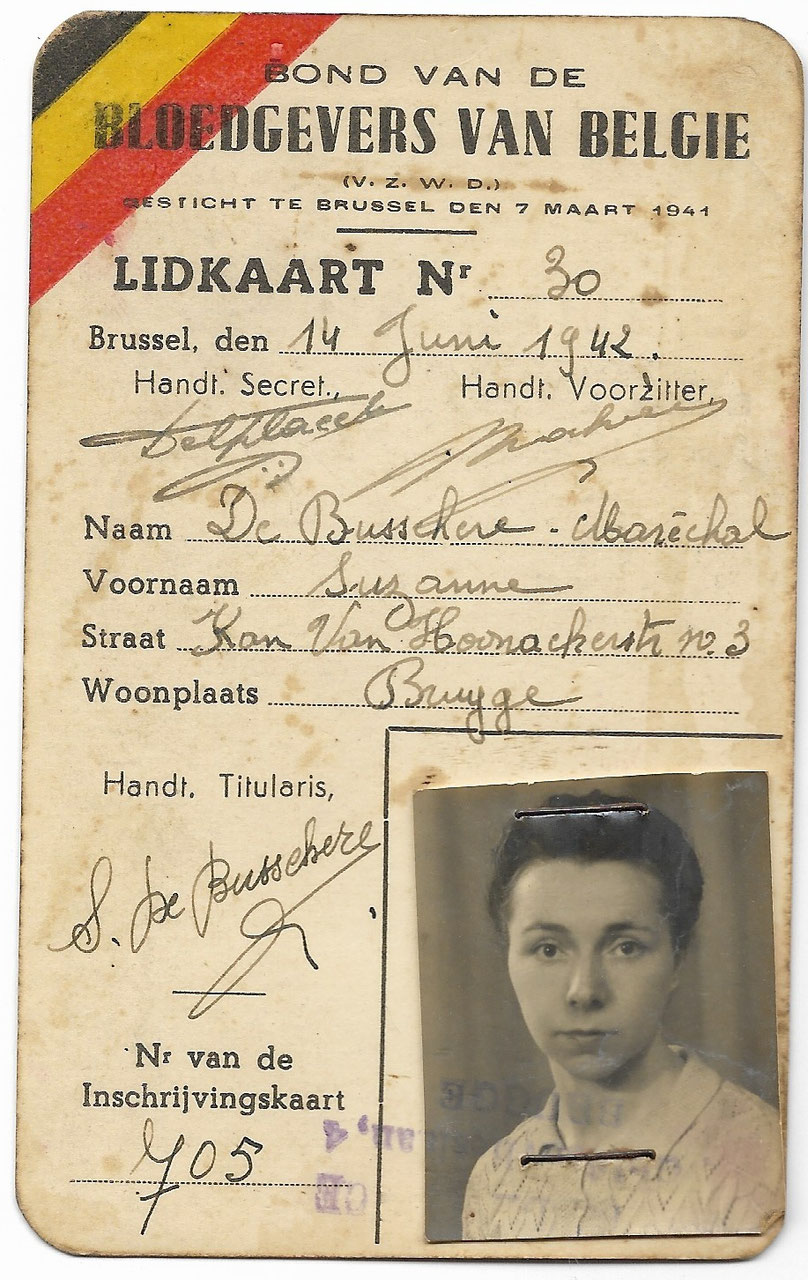 BOND VAN DE
BLOEDGEVERS VAN BELGIE
(V. Z. W. D.)
GESTICHT TE BRUSSEL DEN 7 MAART 1941
LIDKAART Nr 30
Brussel, den 14 Juni 1942.
Handt. Secret., Handt. Voorzitter,
Naam De Busschere - Maréchal
Voornaam Suzanne
Straat Kan Van Hoonackerstr no. 3
Woonplaats Brugge
Handt. Titularis,
S. De Busschere
Nr van de
Inschrijvingskaart
705